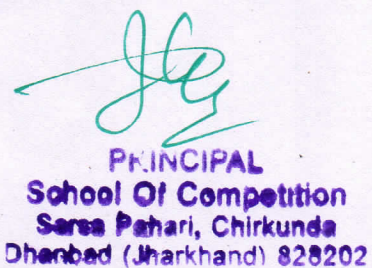 PRINCIPAL
School Of Competition
Sarsa Pahari, Chirkunda
Dhanbad (Jharkhand) 828202